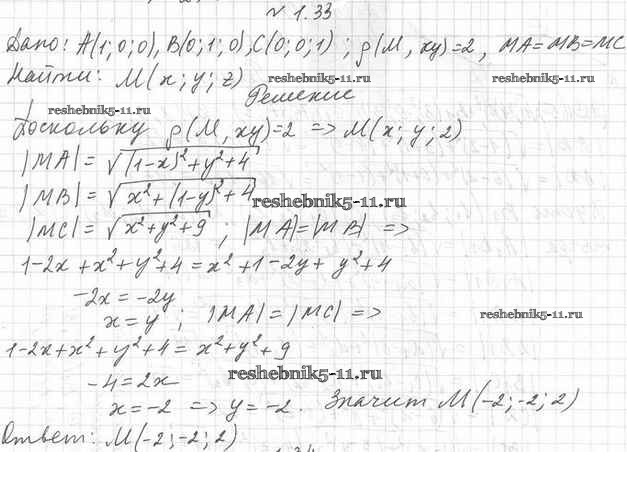 № 1.33
Дано: A(1; 0; 0), B(0; 1; 0), C(0; 0; 1) ; ρ(M, xy)=2, MA=MB=MC
Найти: M(x; y; z) reshebnik5-11.ru reshebnik5-11.ru
Решение
reshebnik5-11.ru
Поскольку ρ(M, xy)=2 => M(x; y; 2)
|MA| = √((1-x)²+y²+4)
|MB| = √(x²+(1-y)²+4)
reshebnik5-11.ru
|MC| = √(x²+y²+9) ; |MA|=|MB| =>
1-2x+x²+y²+4=x²+1-2y+y²+4
-2x=-2y
x=y ; |MA|=|MC| =>
reshebnik5-11.ru
1-2x+x²+y²+4=x²+y²+9
reshebnik5-11.ru
-4=2x
x=-2 => y=-2. Значит M(-2; -2; 2)
Ответ: M(-2; -2; 2)